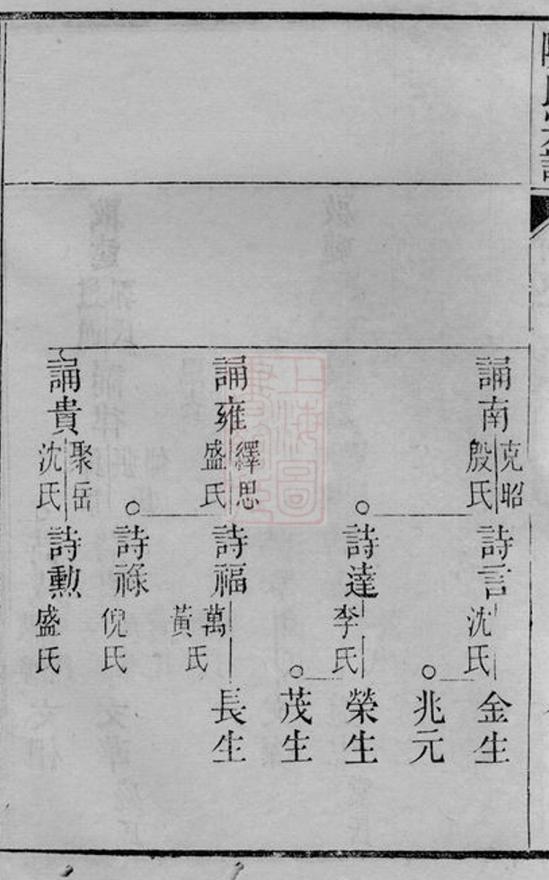 誦南
克昭
殷氏
詩言
沈氏
金生
兆元
詩達
李氏
榮生
茂生
誦雍
繹思
盛氏
詩福
萬氏
黃
長生
詩祿
倪氏
誦貴
聚岳
沈氏
詩勲
盛氏